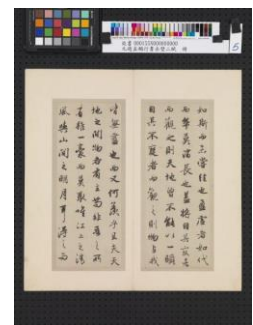 故書 000153N000000000
元趙孟頫行書赤壁二賦 冊
5
如斯而未嘗往也盈虛者如代
而卒莫消長也蓋將自其變者
而觀之則天地曾不能以一瞬
自其不變者而觀之則物與我
皆無盡也而又何羨乎且夫天
地之間物各有主苟非吾之所
有雖一豪而莫取惟江上之清
風與山間之明月耳得之而